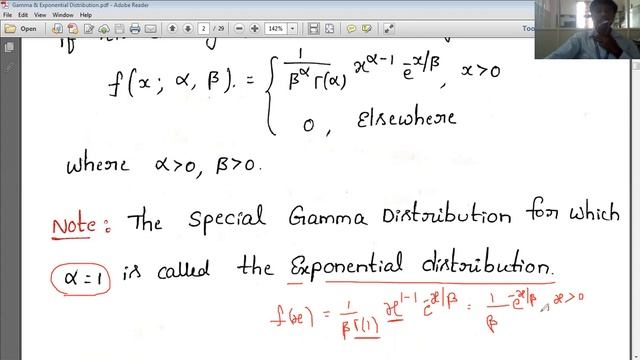 Gamma & Exponential Distribution.pdf - Adobe Reader
2 / 29 142%
f(x; α, β) = { 1/(β^α Γ(α)) x^(α-1) e^(-x/β), x>0
0, Elsewhere
where α>0, β>0.
Note: The Special Gamma Distribution for which
α=1 is called the Exponential distribution.
f(x) = 1/(β Γ(1)) x^(1-1) e^(-x/β) = 1/β e^(-x/β), x>0